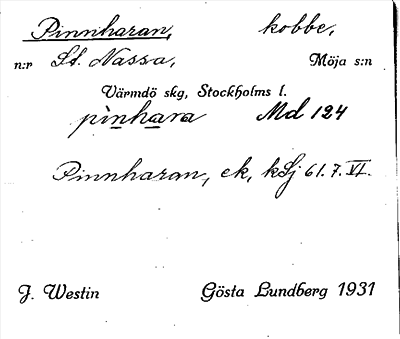 Pinnharan, kobbe,
n:r St. Nassa, Möja s:n
Värmdö skg, Stockholms l.
pinhara Md 124
Pinnharan, ek, kSj 61.7.VI.
J. Westin Gösta Lundberg 1931